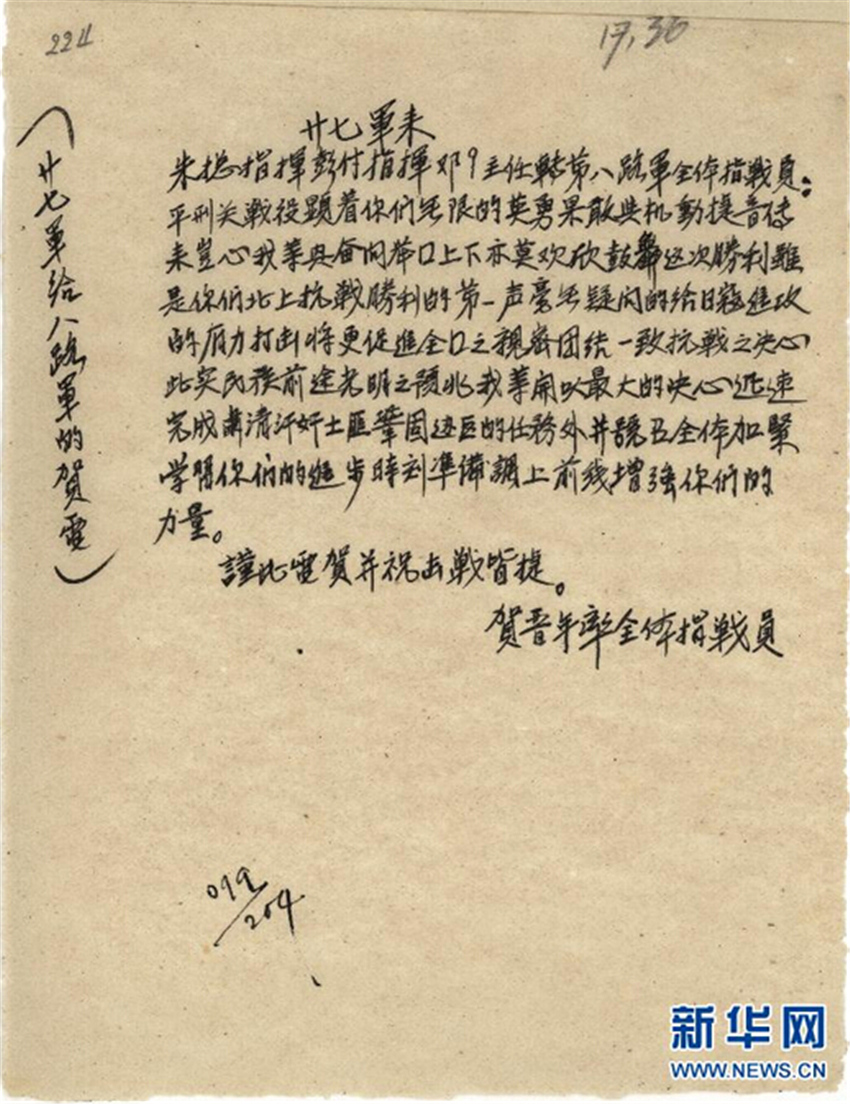 2211
17,36
廿七軍来
朱揔指揮彭付指揮邓9主任轉第八路軍全体指戰員：
平刑关戰役顕着你們无限的英勇果敢与机動捷音传
来岂心我等兴奋问举口上下亦莫欢欣鼓舞这次勝利雖
是你們北上抗戰勝利的第一声毫无疑问的给日寇進攻
的有力打击将更促進全口之親密团结一致抗戰之决心
此实民族前途光明之预兆我等開以最大的决心迅速
完成肃清汗奸土匪鞏固边区的任務外并号召全体加緊
学習你們的進步時刻準備調上前线增強你們的
力量。
謹此電賀并祝击戰皆捷。
賀晋年率全体指戰員
（廿七軍给八路軍的賀電）
099/204
新华网
WWW.NEWS.CN